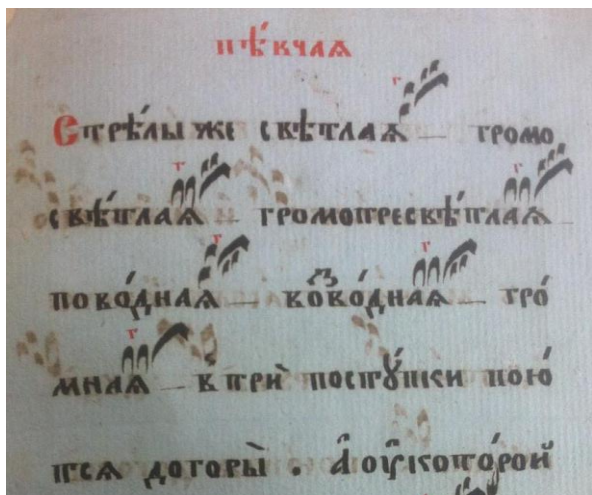 пѣ́вчаѧ
Стрѣ́лы же свѣтлаѧ громо
свѣ́тлаѧ громопресвѣ́тлаѧ
пово́днаѧ ково́днаѧ гро́
мнаѧ въ три̏ постꙋ́пки пою́
тсѧ догоры̀ . А҆ оу҆ которой